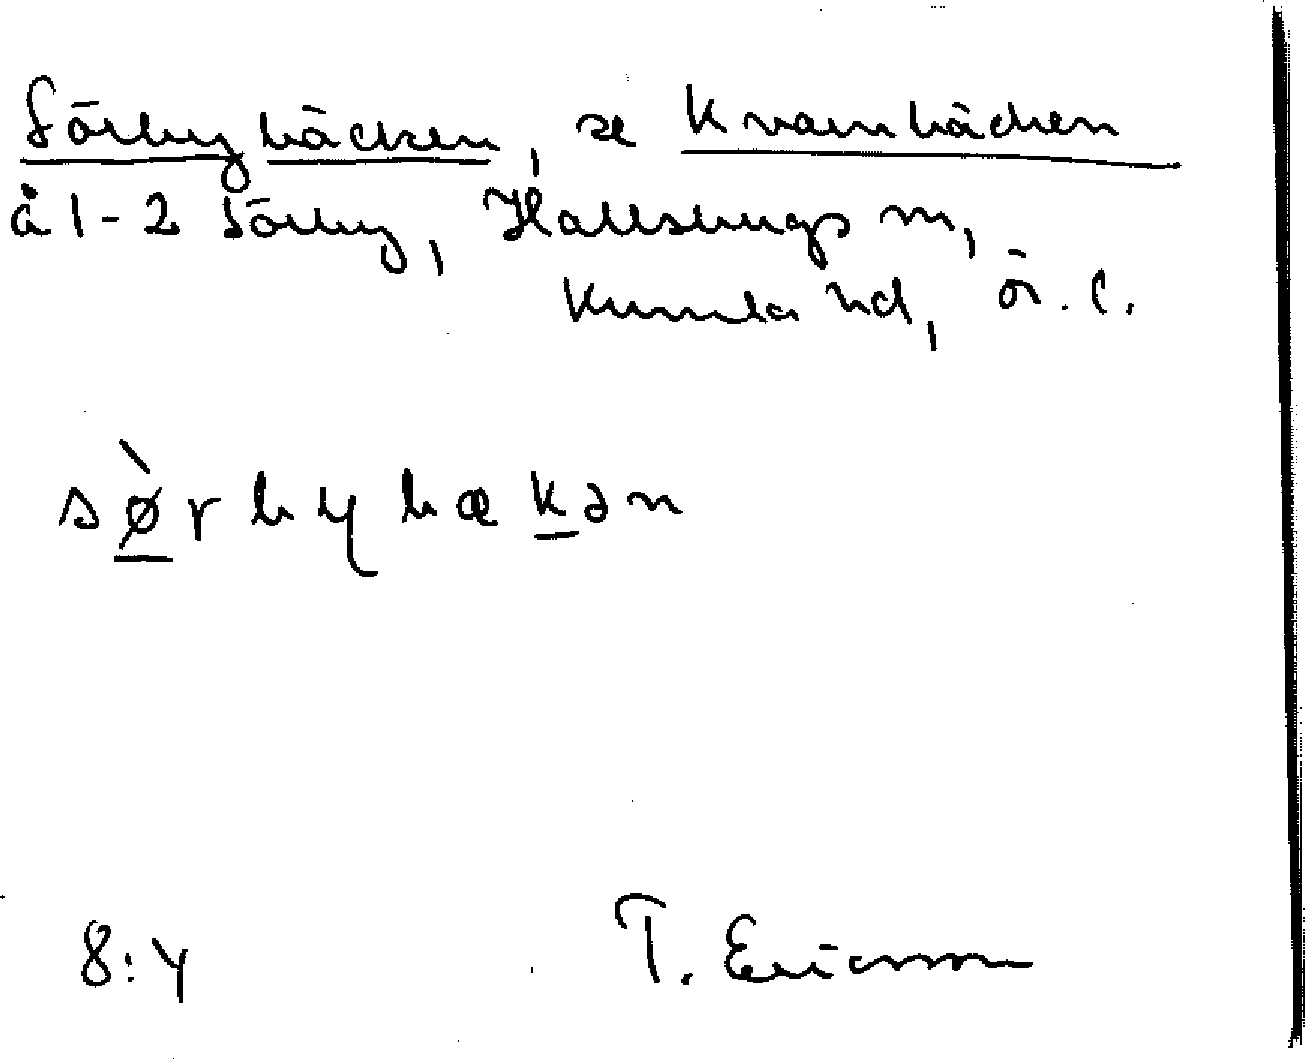 Sörbybäcken, se Kvarnbäcken
å 1-2 Sörby, Hallsbergs sn,
Kumla hd, ör. l.
sø̀rbybækən
8:4 T. Ericsson